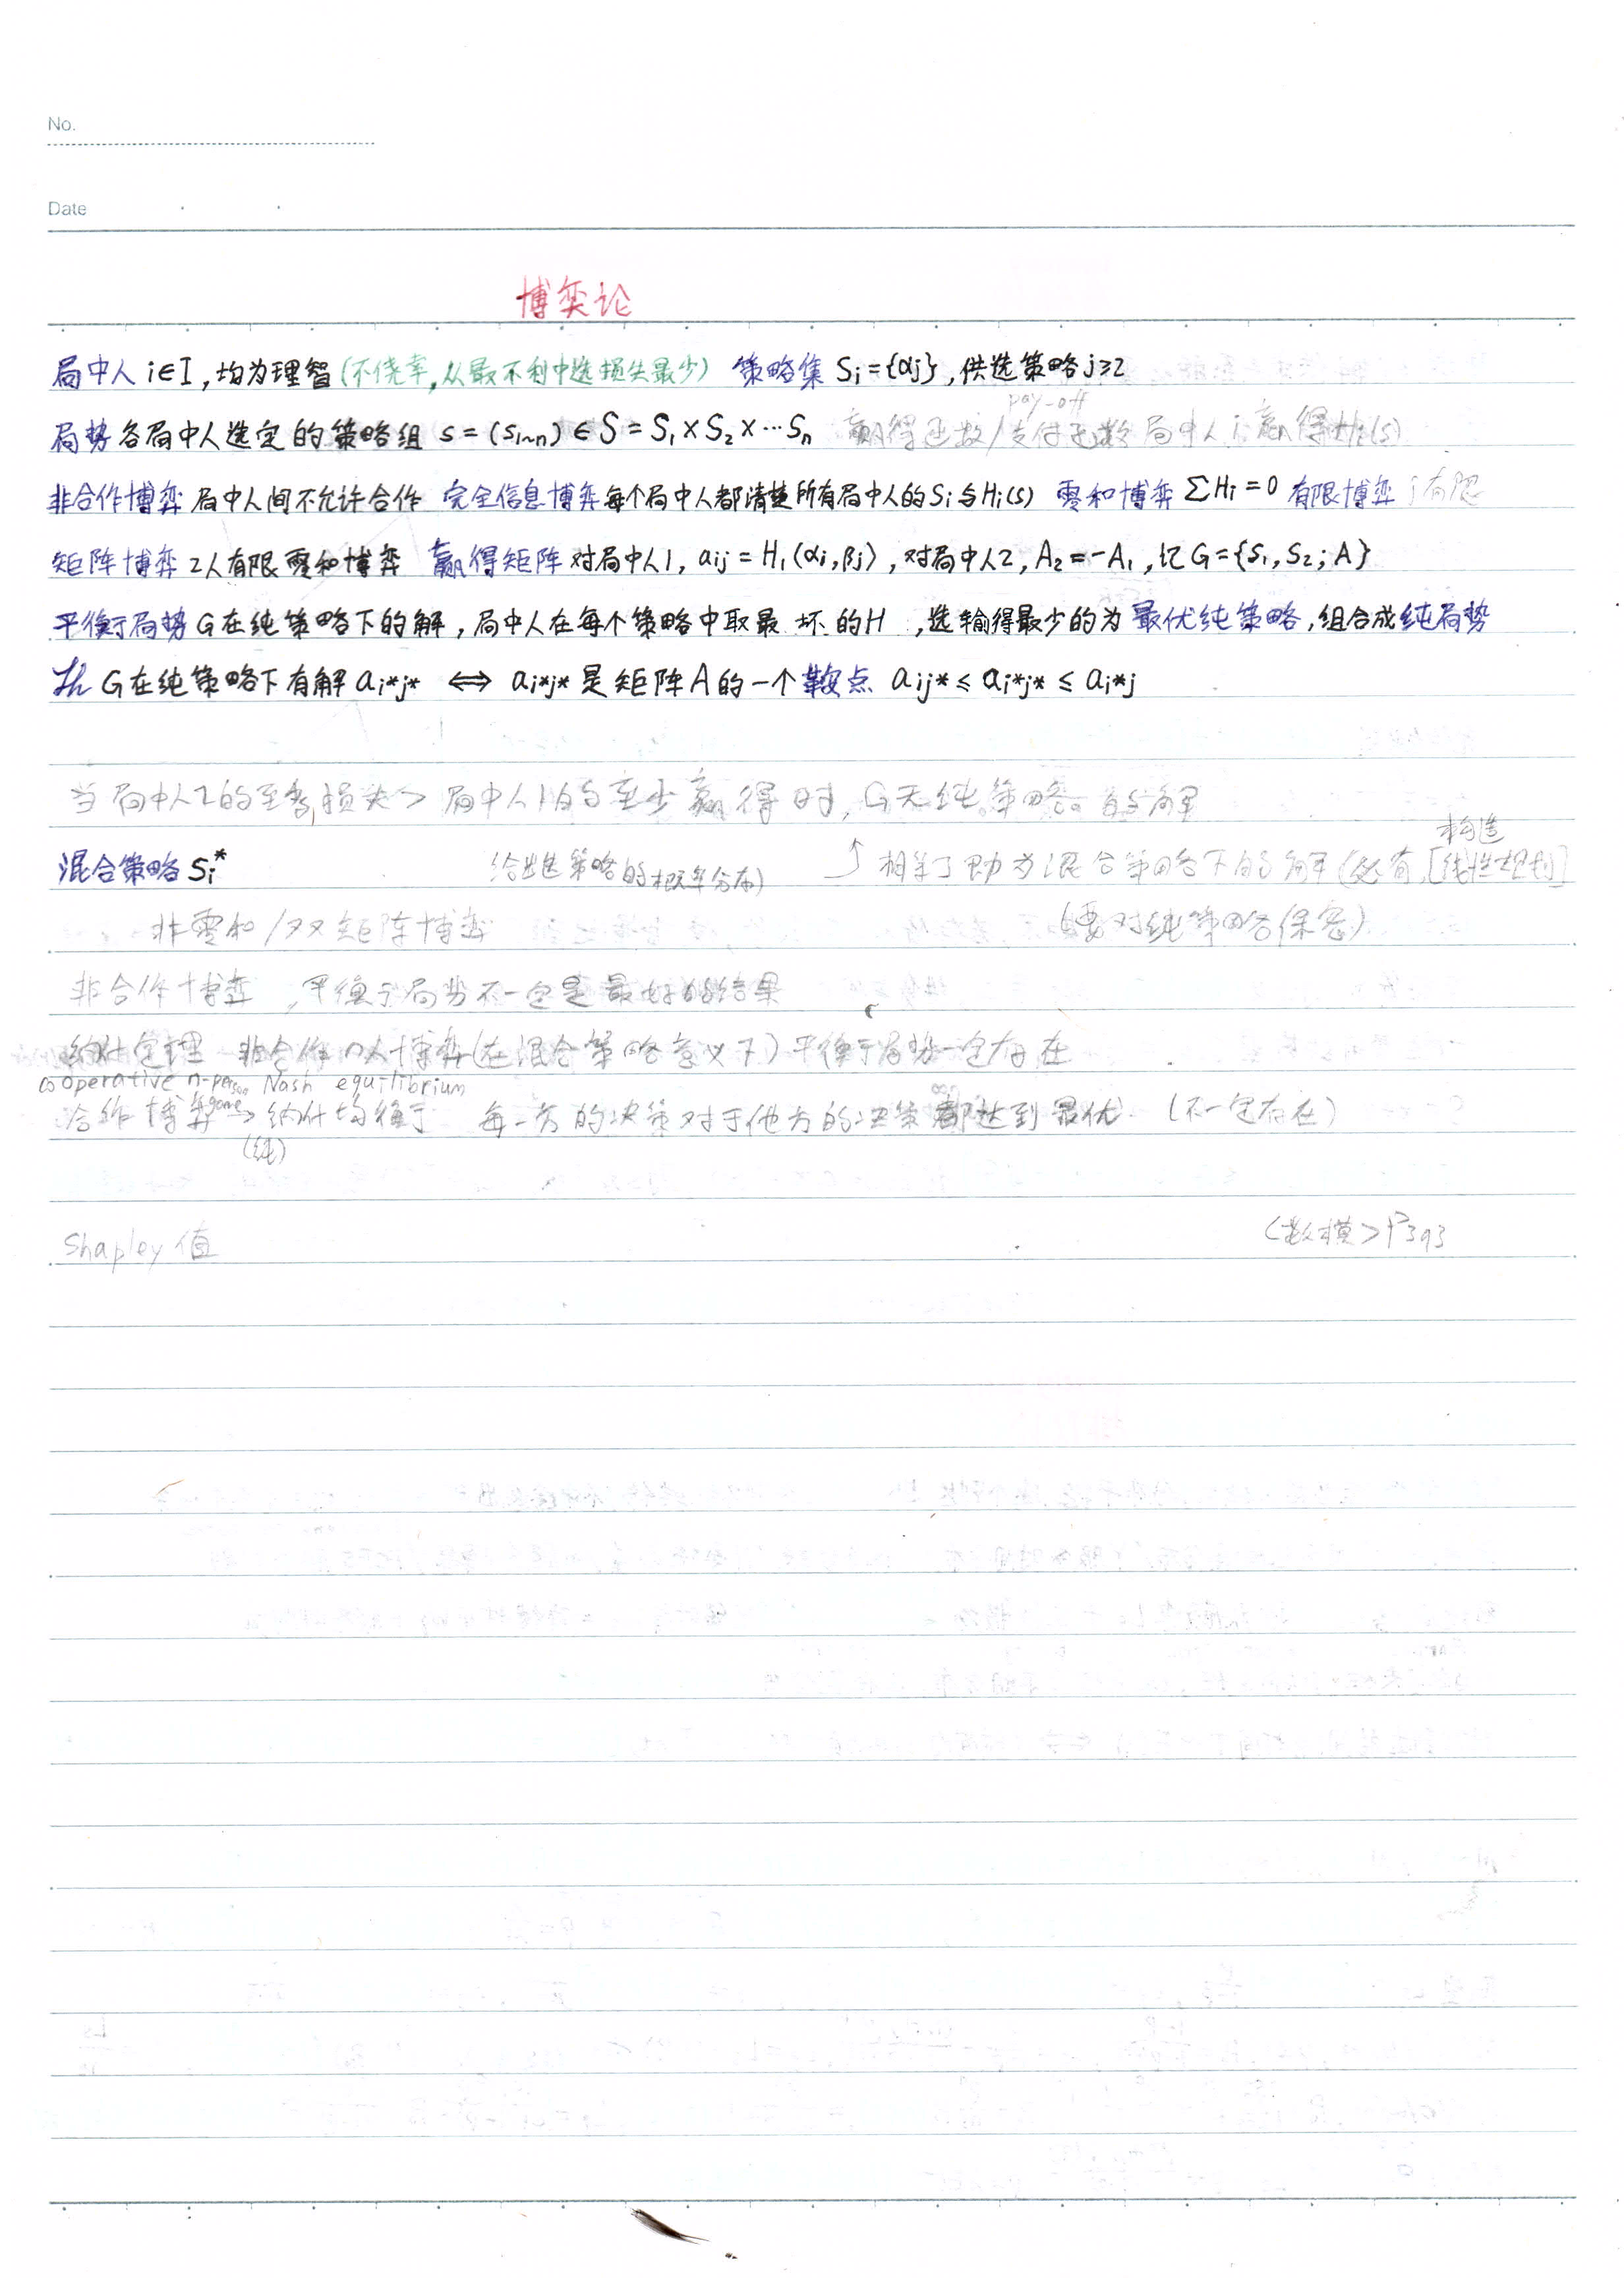 No.
Date
博弈论
局中人 i∈I,均为理智(不侥幸,从最不利中选损失最少) 策略集 Si={αj},供选策略j≥2
pay-off
局势 各局中人选定的策略组 s=(s1~n)∈S=S1×S2×…Sn 赢得函数/支付函数 局中人i赢得Hi(s)
非合作博弈 局中人间不允许合作 完全信息博弈 每个局中人都清楚所有局中人的Si与Hi(s) 零和博弈 ΣHi=0 有限博弈 j有限
矩阵博弈 2人有限零和博弈 赢得矩阵 对局中人1, aij=H1(αi,βj),对局中人2, A2=-A1,记G={S1,S2;A}
平衡局势 G在纯策略下的解,局中人在每个策略中取最坏的H,选输得最少的为最优纯策略,组合成纯局势
Th G在纯策略下有解ai*j* ⟺ ai*j*是矩阵A的一个鞍点 aij*≤ai*j*≤ai*j
当局中人2的至多损失>局中人1的至少赢得时,G无纯策略的解
构造
混合策略Si* 给出选策略的概率分布) 相等了即为混合策略下的解(必有,[线性规划]
非零和/双矩阵博弈 (要对纯策略保密)
非合作博弈,平衡局势不一定是最好的结果
纳什定理 非合作n人博弈(在混合策略意义下)平衡局势一定存在
cooperative n-person game Nash equilibrium
合作博弈→纳什均衡 每一方的决策对于他方的决策都达到最优 (不一定存在)
(纯)
Shapley值 <数模>P393